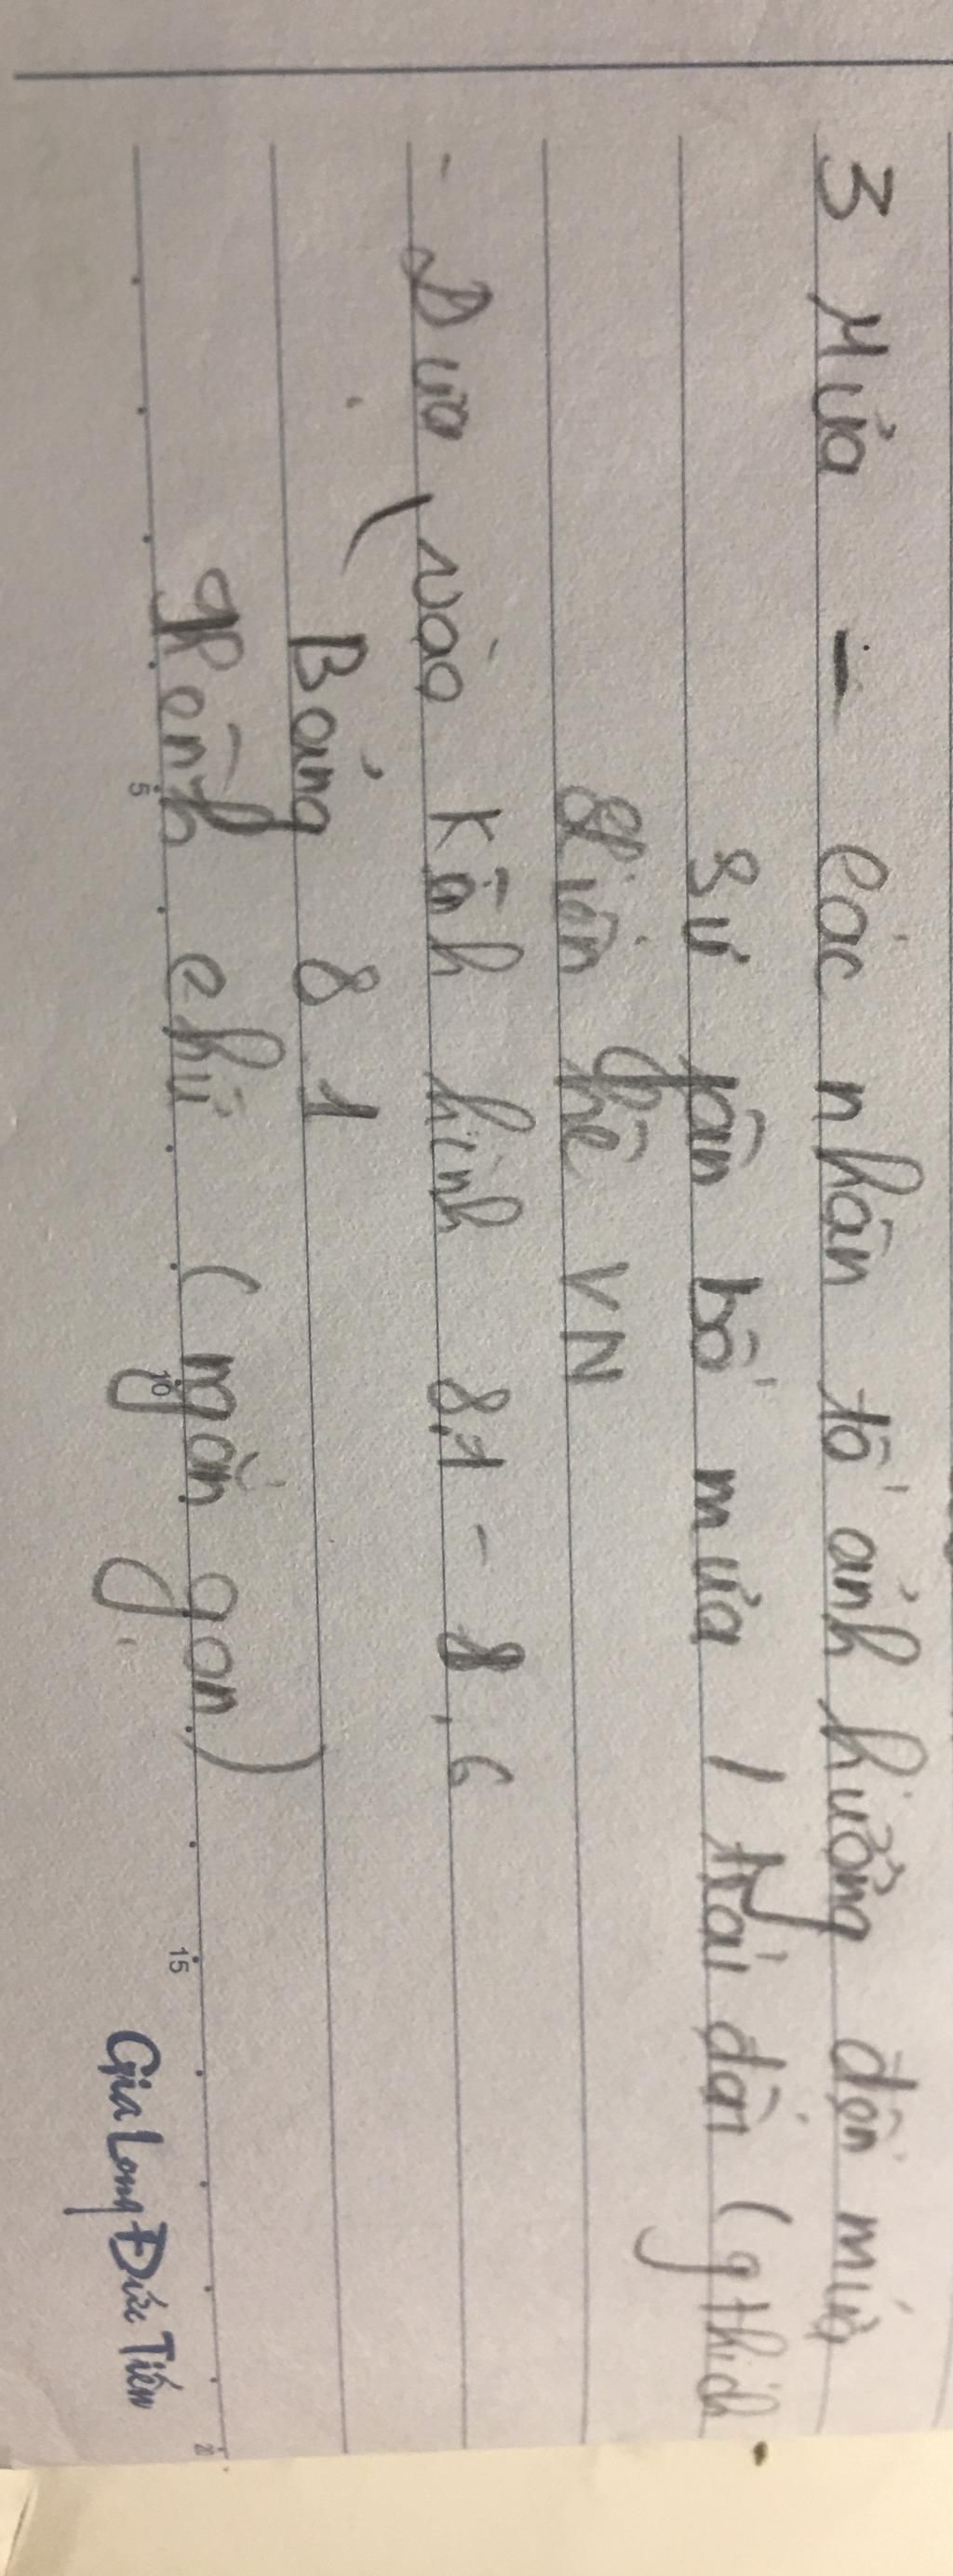 3 Mưa - Các nhân tố ảnh hưởng đến mưa
Sự fân bố mưa / trái đất (g thích
Liên hệ VN
- Dựa vào kênh hình 8.1 - 8.6
Bảng 8 1
Kênh chữ (ngắn gọn)
5 10 15 20
Gia Long Đức Tiến